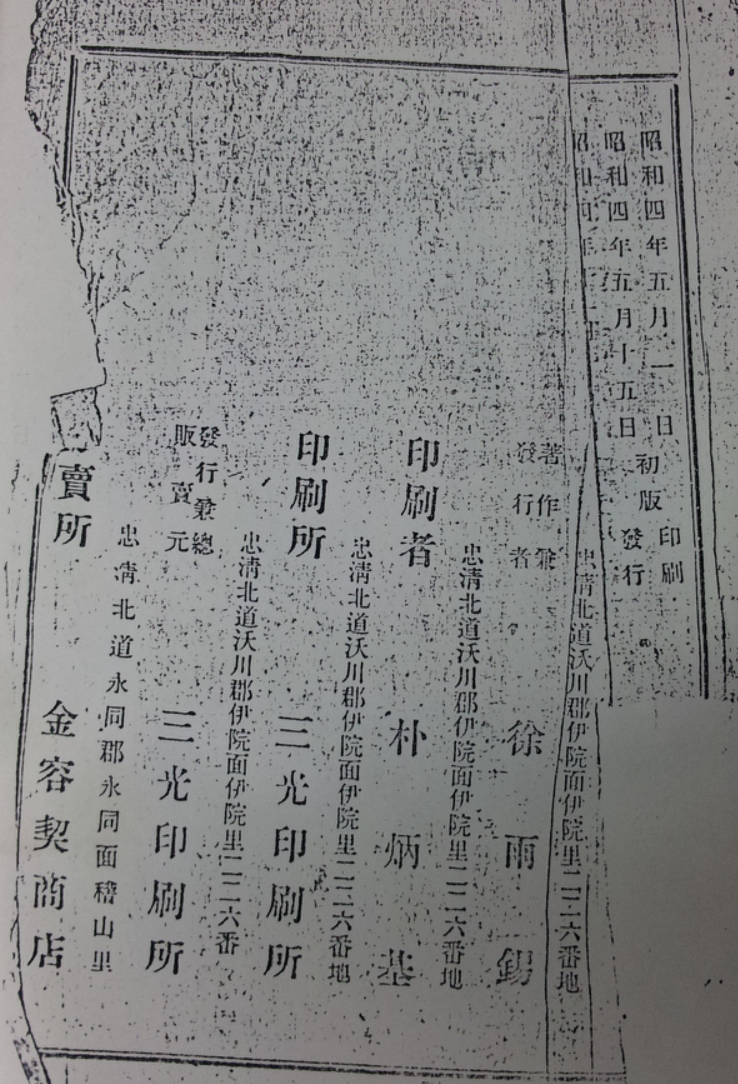 昭和四年五月一日初版印刷
昭和四年五月十五日 發行
昭和四年
忠清北道沃川郡伊院面伊院里二二六番地
著作兼
發行者
徐雨錫
忠清北道沃川郡伊院面伊院里二二六番地
印刷者 朴炳基
忠清北道沃川郡伊院面伊院里二二六番地
印刷所 三光印刷所
忠清北道沃川郡伊院面伊院里二二六番
發行兼總
販賣元
三光印刷所
忠清北道永同郡永同面稽山里
賣所 金容契商店